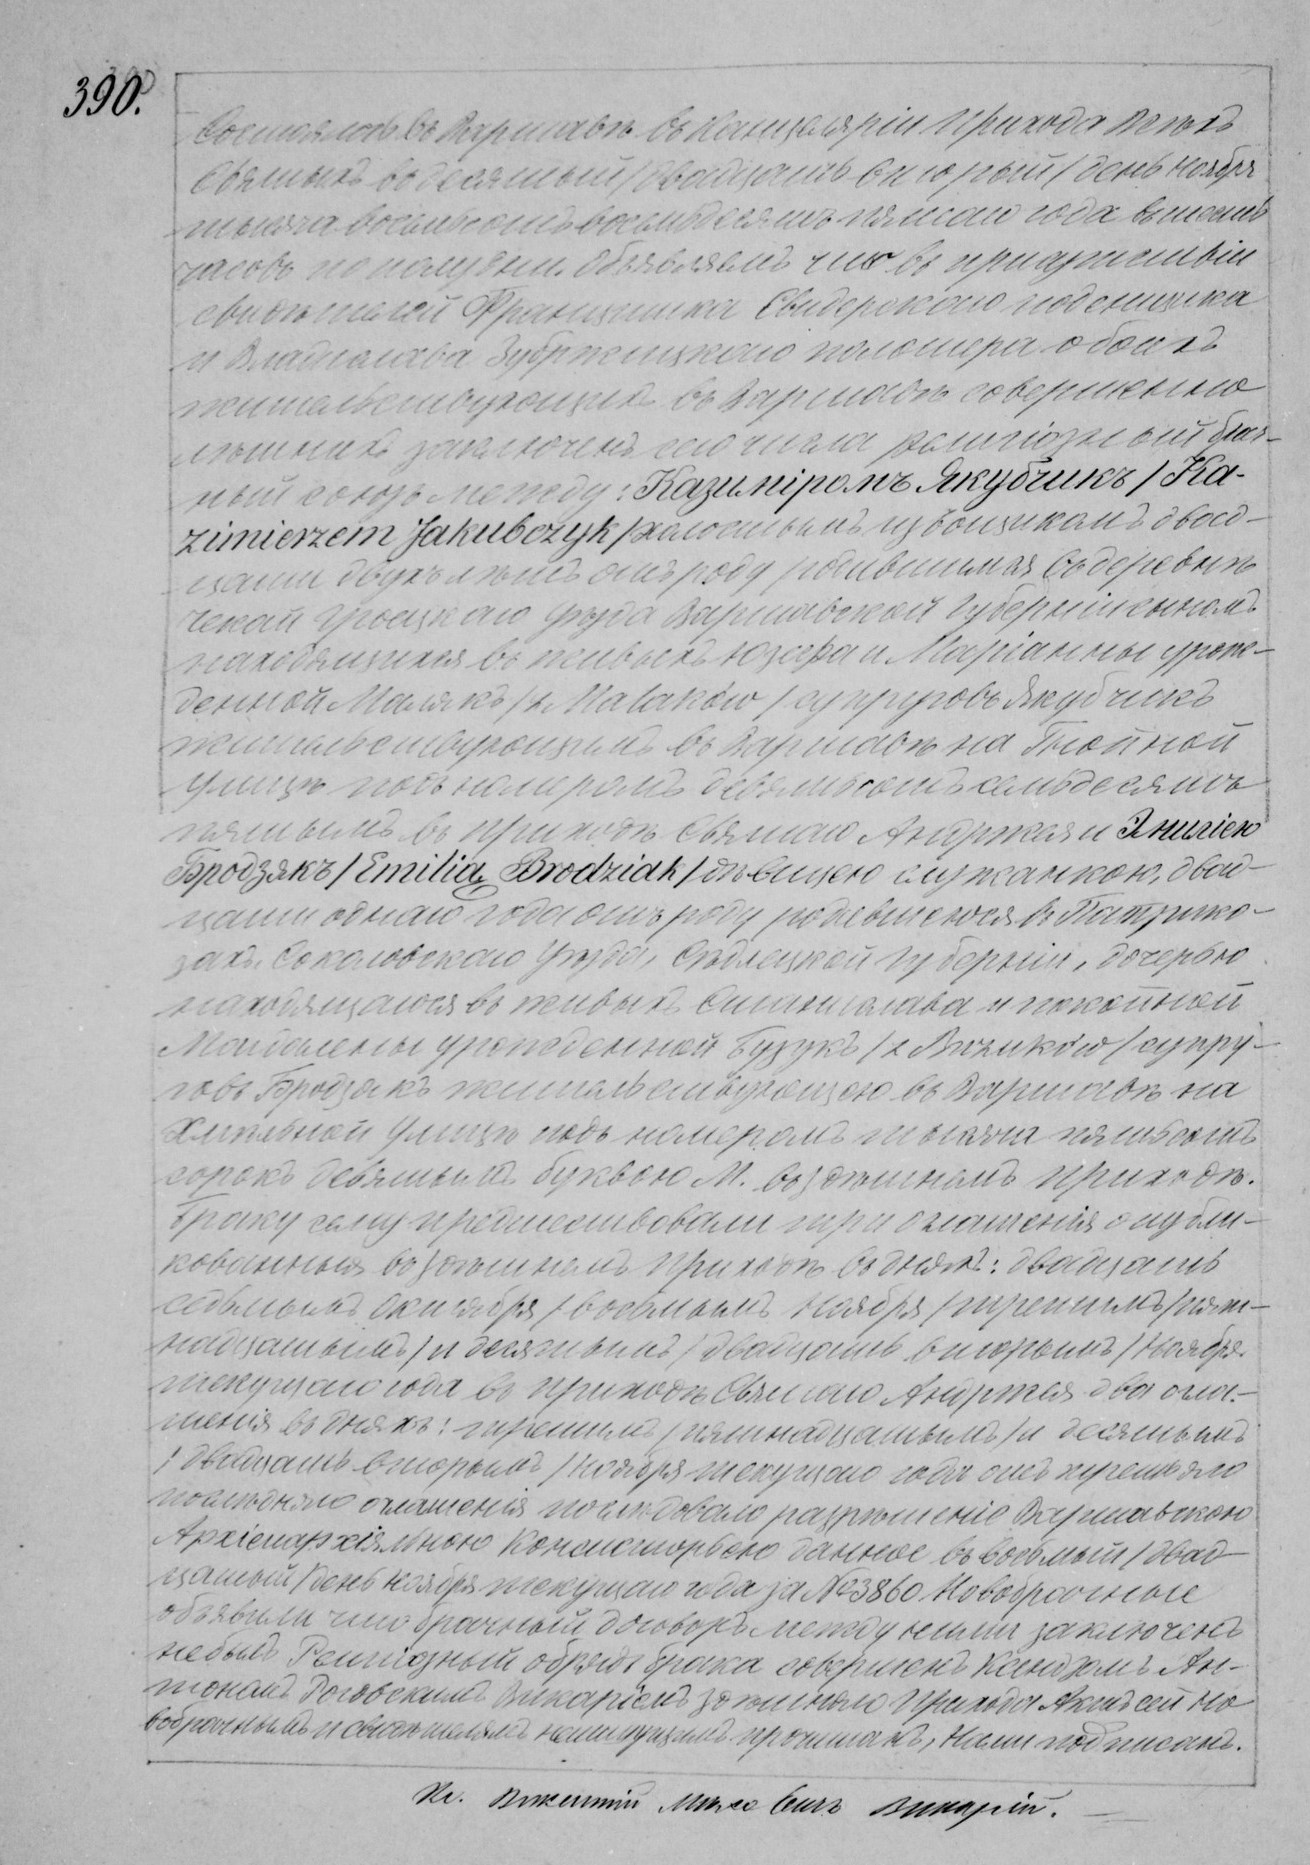 390.
Состоялось въ Варшавѣ въ Канцеляріи Прихода Всѣхъ
Святыхъ въ десятый / двадцать вторый / день Ноября
тысяча восемьсотъ восемьдесятъ пятаго года въ шесть
часовъ по полудни. Объявляемъ что въ присутствіи
свидѣтелей Францишка Свидерскаго поденщика
и Владислава полотера обоихъ
жительствующихъ въ Варшавѣ совершенно
лѣтнихъ заключенъ сего числа религіозный брач-
ный союзъ между: Казиміромъ Якубчикъ / Ka-
zimierzem Jakubczyk / холостымъ извощикомъ двад-
цати двухъ лѣтъ отъ роду родившимся въ деревнѣ
Гроецкаго Уѣзда Варшавской Губерніи сыномъ
находящихся въ живыхъ Юзефа и Маріанны урож-
денной Малякъ / z Malaków / супруговъ Якубчикъ
жительствующимъ въ Варшавѣ на Гнойной
Улицѣ подъ номеромъ девятьсотъ семьдесятъ
пятымъ въ приходѣ Святаго Андржея и Эмиліею
Бродзякъ / Emilią Brodziak / дѣвицею служанкою, двад-
цати однаго года отъ роду родившеюся въ Патрико-
захъ, Соколовскаго Уѣзда, Сѣдлецкой Губерніи, дочерью
находящагося въ живыхъ Станислава и покойной
Магдалены урожденной / супру-
говъ Бродзякъ жительствующею въ Варшавѣ на
Хмѣльной Улицѣ подъ номеромъ тысяча пятьсотъ
сорокъ девятымъ буквою М. въ здѣшнемъ Приходѣ.
Браку сему предшествовали три оглашенія опубли-
кованныя въ здѣшнемъ Приходѣ въ дняхъ: двадцать
седьмымъ Октября / восьмымъ Ноября / третьимъ / пят-
надцатымъ / и десятымъ / двадцать вторымъ / Ноября
текущаго года въ приходѣ Святаго Андржея два огла-
шенія въ дняхъ: третьимъ / пятнадцатымъ / и десятымъ
/ двадцать вторымъ / Ноября текущаго года отъ третьяго
послѣдняго оглашенія послѣдовало разрѣшеніе Варшавскою
Архіепархіяльною Консисторьею данное въ восьмый / двад-
цатый / день Ноября текущаго года за №3860. Новобрачные
объявили что брачный договоръ между ними заключенъ
небылъ Религіозный обрядъ брака совершенъ Ксендзомъ Ан-
тономъ Роговскимъ Викаріемъ здѣшняго Прихода Актъ сей но
вобрачнымъ и свидѣтелямъ неписущимъ прочитанъ, Нами подписанъ.
Кс. Викарій.